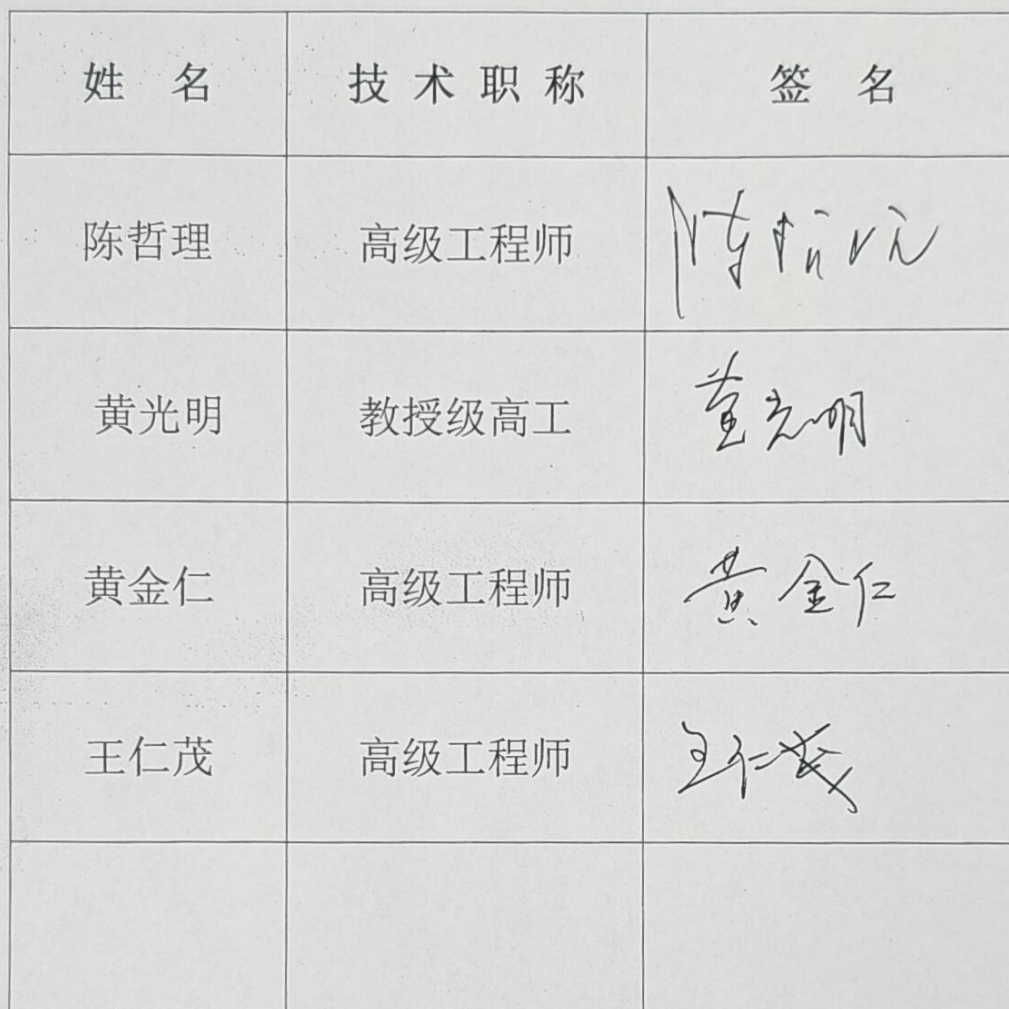 姓 名 技术职称 签 名
陈哲理 高级工程师 陈哲理
黄光明 教授级高工 黄光明
黄金仁 高级工程师 黄金仁
王仁茂 高级工程师 王仁茂